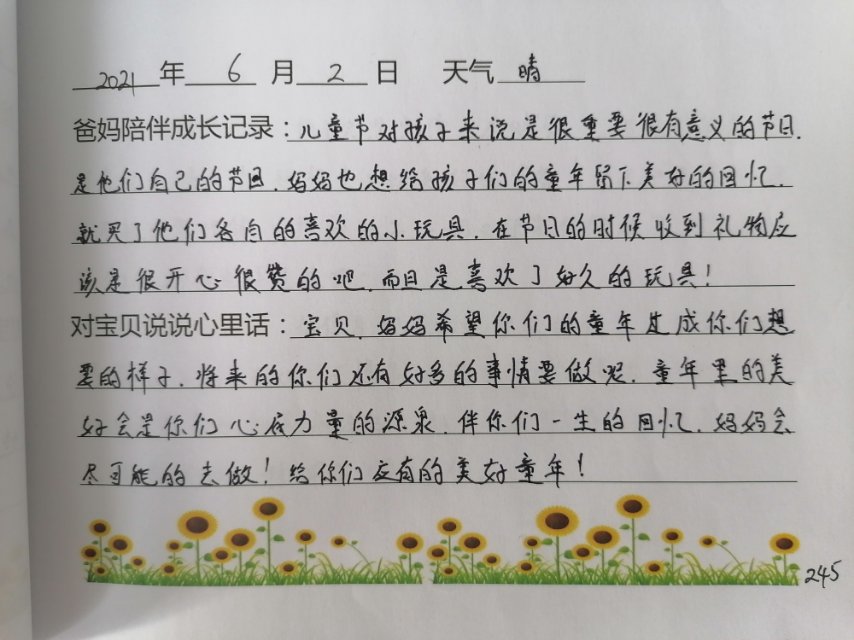 2021年 6 月 2 日 天气 晴
爸妈陪伴成长记录：儿童节对孩子来说是很重要很有意义的节日.
是他们自己的节日.妈妈也想给孩子们的童年留下美好的回忆.
就买了他们各自的喜欢的小玩具.在节日的时候收到礼物应
该是很开心很赞的吧.而且是喜欢了好久的玩具！
对宝贝说说心里话：宝贝.妈妈希望你们的童年过成你们想
要的样子.将来的你们还有好多的事情要做呢.童年里的美
好会是你们心底力量的源泉.伴你们一生的回忆.妈妈会
尽可能的去做！给你们应有的美好童年！
245